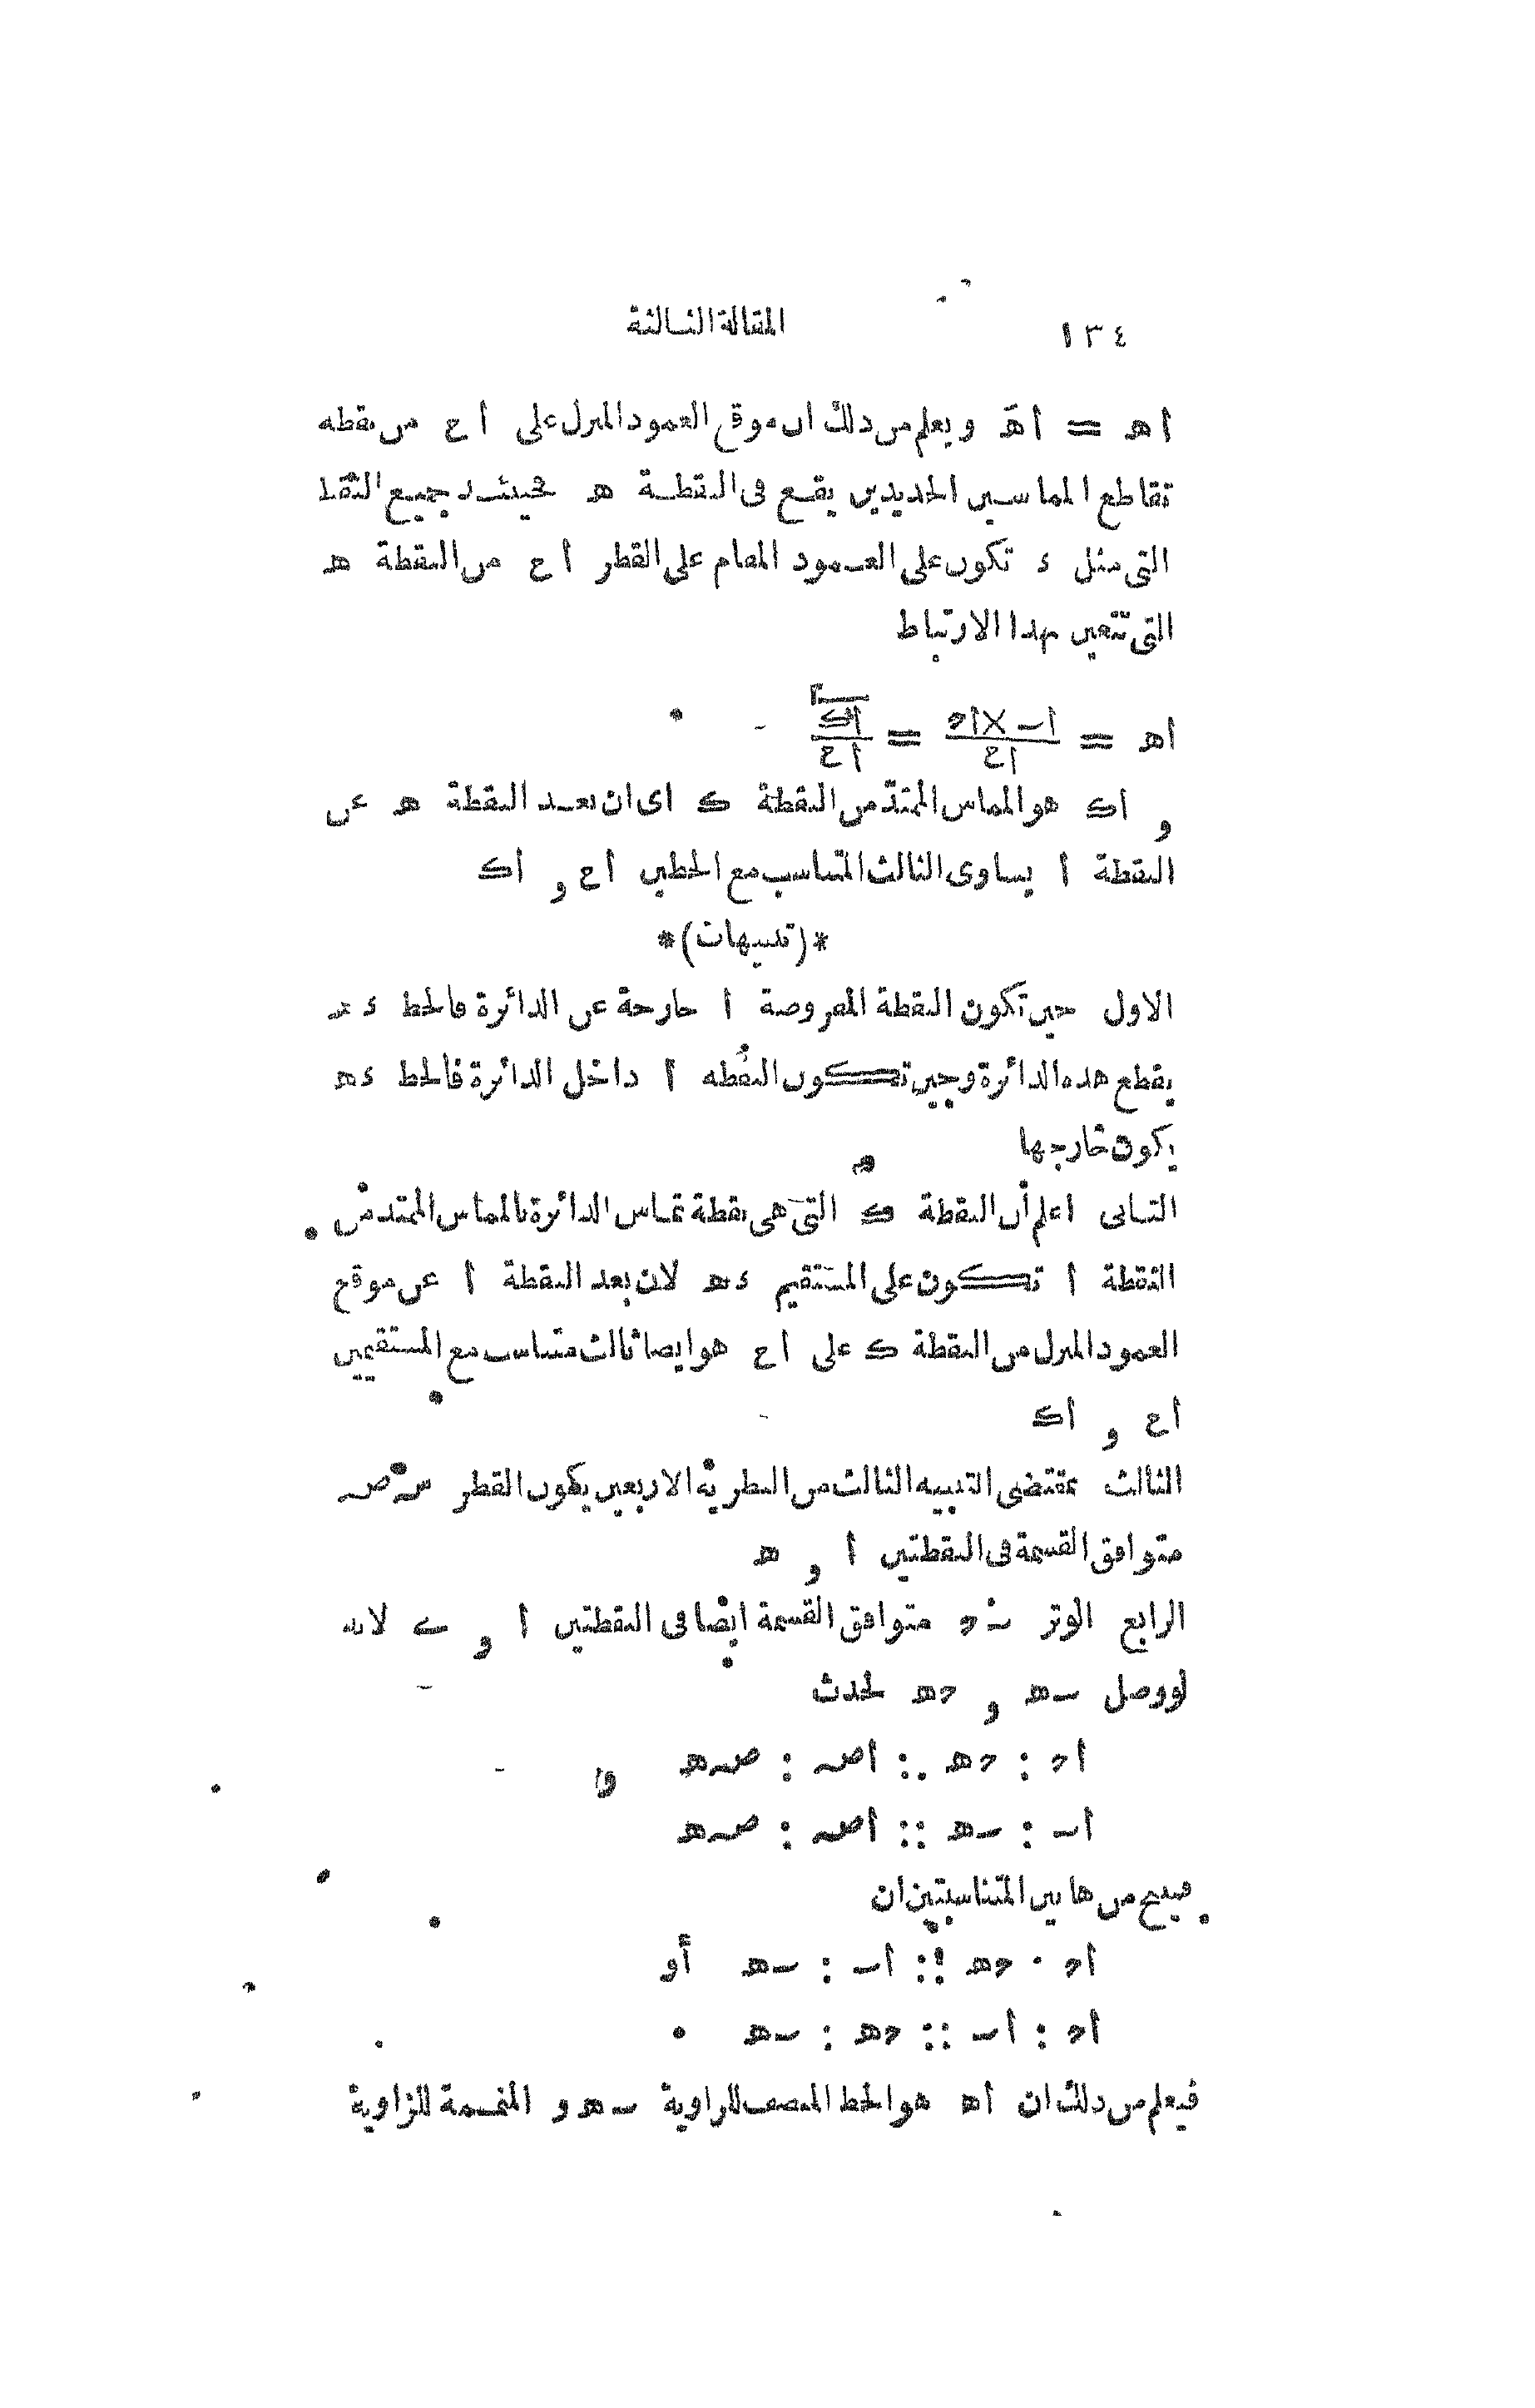 ١٣٤ المقالة الثالثة
اه = اهَ ويعلم من ذلك ان موقع العمود المنزل على اح من نقطه
تقاطع المماسين الجديدين يقع فى النقطة ه فحينئذ جميع النقط
التى مثل ء تكون على العمود المقام على القطر اح من النقطة ه
التى تتعين بهذا الارتباط
اه = (اٮ × اد)/(اح) = (اك)٢/(اح)
و اك هو المماس الممتد من النقطة ك اى ان بعد النقطة ه عن
النقطة ا يساوى الثالث المتناسب مع الخطين اح و اك
*(تنبيهات)*
الاول حين تكون النقطة المفروضة ا خارجة عن الدائرة فالخط ءه
يقطع هذه الدائرة وحين تكون النقطه ا داخل الدائرة فالخط ءه
يكون خارجها
الثانى اعلم أن النقطة ك التى هى نقطة تماس الدائرة بالمماس الممتد من
النقطة ا تكون على المستقيم ءه لان بعد النقطة ا عن موقع
العمود المنزل من النقطة ك على اح هو ايضا ثالث متناسب مع المستقيمين
اح و اك
الثالث بمقتضى التنبيه الثالث من النظرية الاربعين يكون القطر سه صه
متوافق القسمة فى النقطتين ا و ه
الرابع الوتر ٮ د متوافق القسمة ايضا فى النقطتين ا و ى لانه
لووصل ٮه و ده لحدث
اد : ده :: اصه : صهه و
اٮ : ٮه :: اصه : صهه
فينتج من هاتين المتناسبتين ان
اد : ده :: اٮ : ٮه أو
اد : اٮ :: ده : ٮه
فيعلم من ذلك ان اه هو الخط المنصف للزاوية ٮهد المتممة للزاوية